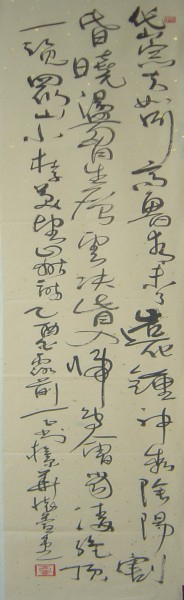 岱宗夫如何齊魯青未了造化鍾神秀陰陽割
昏曉盪胸生層雲決眥入歸鳥會當凌絕頂
一覽眾山小杜甫望嶽詩乙酉露前一